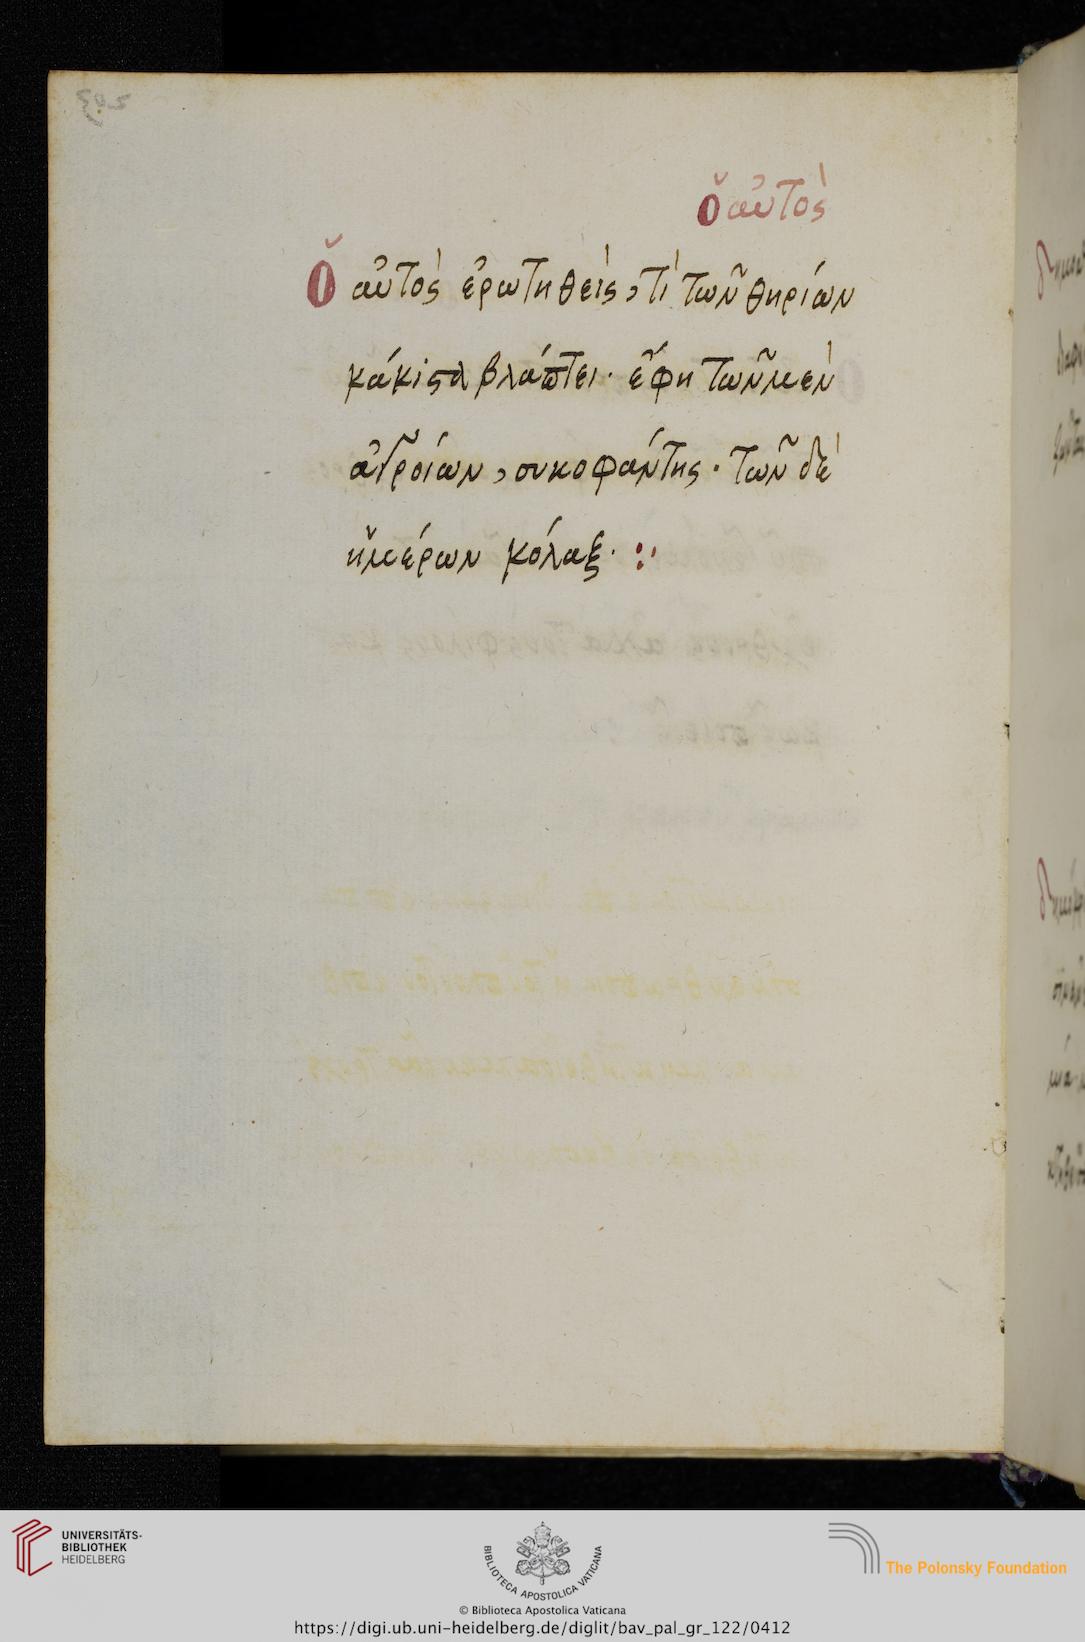 ὁ αὐτὸς
Ὁ αὐτὸς ἐρωτηθεὶς, τὶ τῶν θηρίων
κάκιστα βλάπτει· ἔφη τῶν μὲν
ἀγροίων, συκοφάντης· τῶν δὲ
ἡμέρων κόλαξ· :·
UNIVERSITÄTS-
BIBLIOTHEK
HEIDELBERG
BIBLIOTECA APOSTOLICA VATICANA
The Polonsky Foundation
© Biblioteca Apostolica Vaticana
https://digi.ub.uni-heidelberg.de/diglit/bav_pal_gr_122/0412